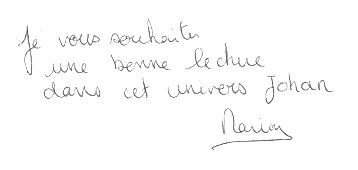 Je vous souhaites
une bonne lecture
dans cet univers Johan
Marion